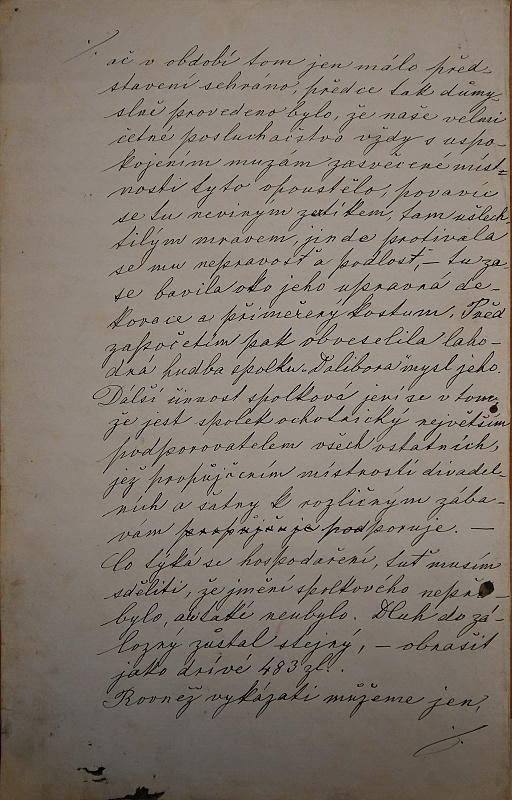 ač v období tom jen málo před-
stavení sehráno, předce tak důmy-
slně provedeno bylo, že naše velmi
četné posluchačstvo vždy s uspo-
kojením muzám zasvěcené míst-
nosti tyto opouštělo, pobavíc
se tu neviným žertíkem, tam ušlech-
tilým mravem, jinde protivala
se mu nepravosť a podlosť, – tu za-
se bavila oko jeho upravná de-
korace a přiměřený kostum. Před
započetím pak obveselila laho-
dná hudba spolku „Dalibora" mysl jeho.
Další činnost spolková jeví se v tom,
že jest spolek ochotnický největším
podporovatelem všech ostatních,
jež propůjčením místností divadel-
ních a šatny k rozličným zába-
vám propůjčuje podporuje. –
Co týká se hospodaření, tuť musím
sděliti, že jmění spolkového nepři-
bylo, aniž také neubylo. Dluh do zá-
ložny zůstal stejný, – obnášit
jako dříve 483 zl.
Rovněž vykázati můžeme jen,